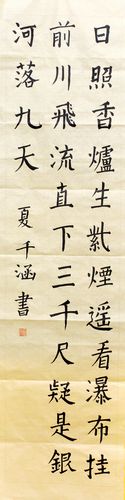 日照香爐生紫煙遥看瀑布挂
前川飛流直下三千尺疑是銀
河落九天
夏千涵書